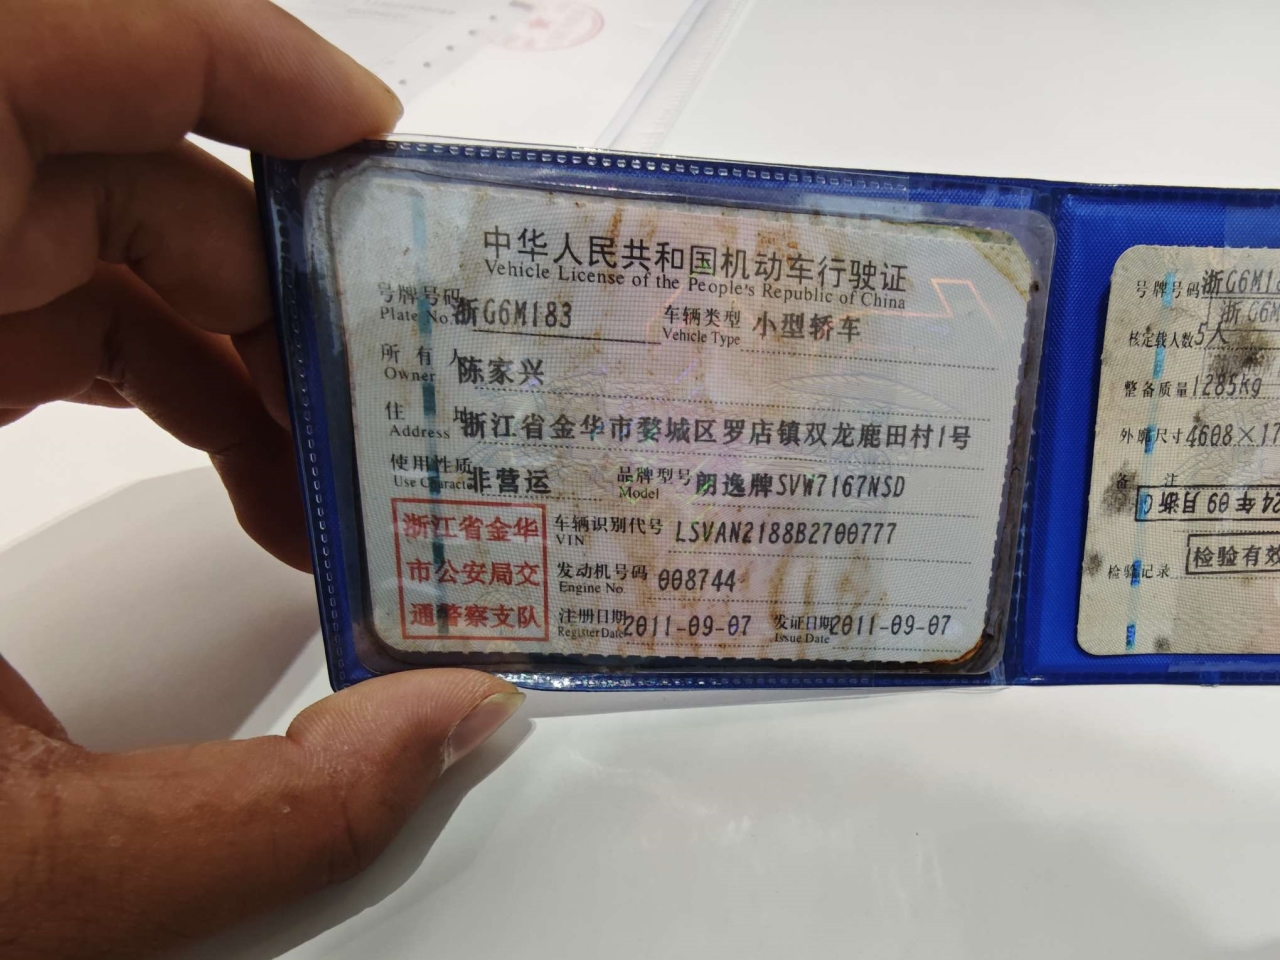 中华人民共和国机动车行驶证
Vehicle License of the People's Republic of China
号牌号码 浙G6M183 车辆类型 小型轿车
Plate No. Vehicle Type
所有人 陈家兴
Owner
住址 浙江省金华市婺城区罗店镇双龙鹿田村1号
Address
使用性质 非营运 品牌型号 朗逸牌SVW7167NSD
Use Character Model
浙江省金华
市公安局交
通警察支队
车辆识别代号 LSVAN2188B2700777
VIN
发动机号码 008744
Engine No.
注册日期 2011-09-07 发证日期 2011-09-07
Register Date Issue Date
号牌号码 浙G6M1
浙G6M
核定载人数 5人
整备质量 1285kg
外廓尺寸 4608×17
备注
24年09月浙G
检验有效
检验记录